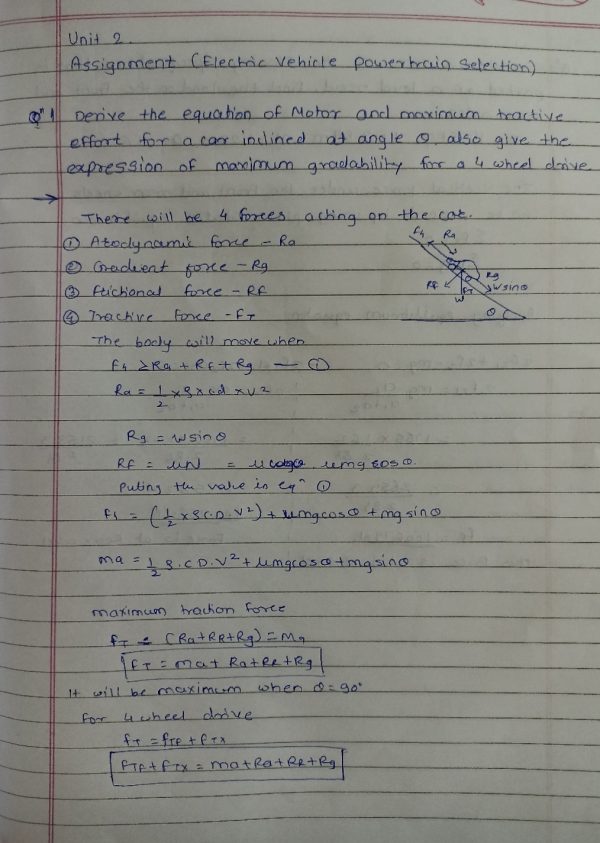 Unit 2.
Assignment (Electric Vehicle powertrain selection)
Qⁿ 1 Derive the equation of Motor and maximum tractive
effort for a car inclined at angle θ. also give the
expression of maximum gradability for a 4 wheel drive.
→ There will be 4 forces acting on the car.
① Aerodynamic force - Ra
② Gradient force - Rg
③ Frictional force - RF
④ Tractive force - FT
Ra
Rg
RF
W
wsinθ
θ
The body will move when
Ft ≥ Ra + RF + Rg — ①
Ra = 1/2 × ρ × cd × V²
Rg = wsinθ
RF = μN = μmg cosθ.
Puting the value in eqⁿ ①
Ft = (1/2 × ρ C.D. V²) + μmgcosθ + mg sinθ
ma = 1/2 ρ. CD. V² + μmgcosθ + mg sinθ
maximum traction force
FT = (Ra + RR + Rg) = Ma
FT = ma + Ra + RR + Rg
It will be maximum when θ = 90°
For 4 wheel drive
FT = FTF + FTX
FTF + FTX = ma + Ra + RR + Rg